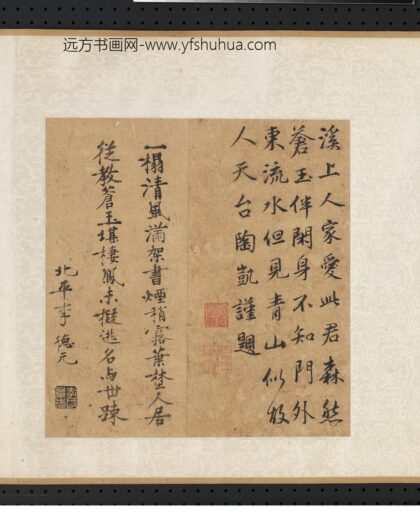 远方书画网-www.yfshuhua.com
溪上人家愛此君森然
蒼玉伴閑身不知門外
東流水但見青山似故
人天台陶凱謹題
一榻清風滿架書煙稍露葉楚人居
從教蒼玉堪棲鳳未擬逃名与世踈
北平李德元